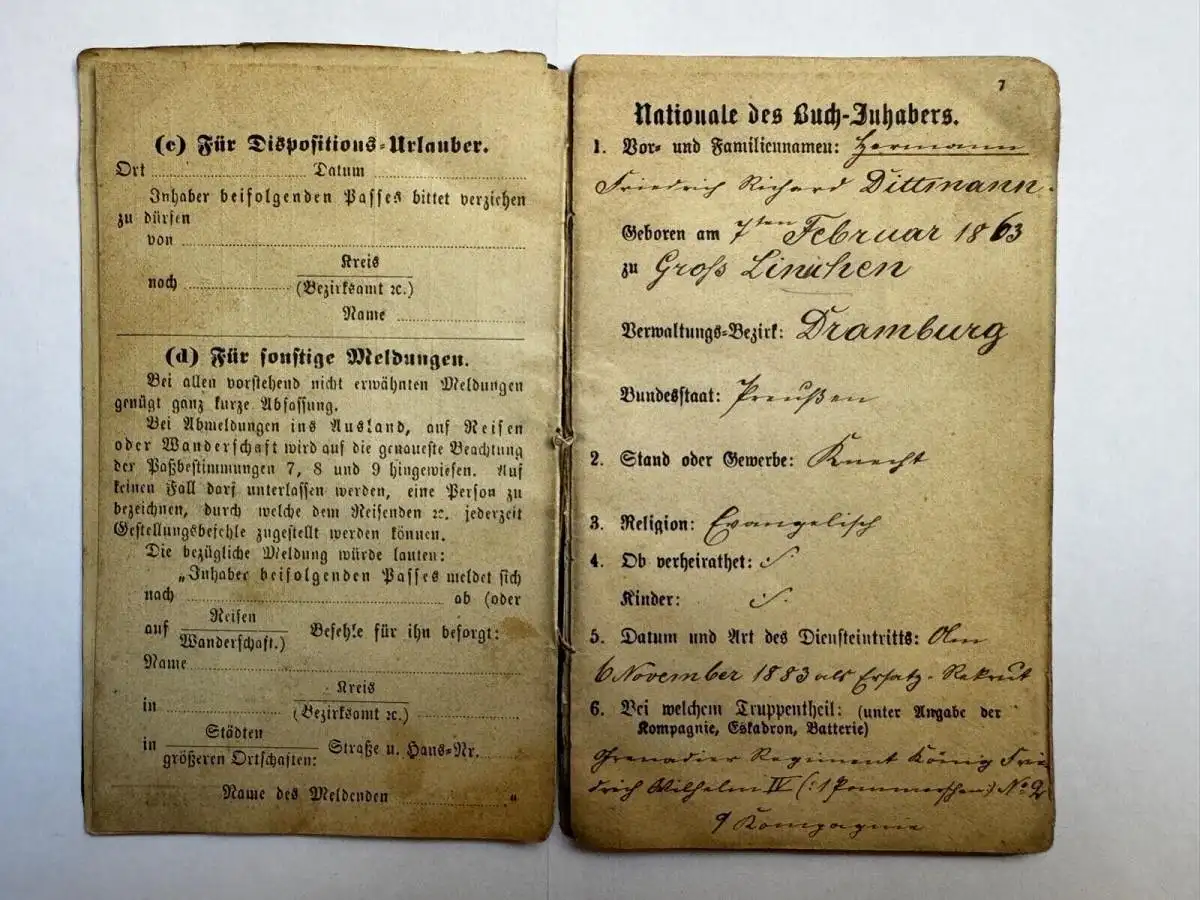 (c) Für Dispositions-Urlauber.
Ort Datum
Inhaber beifolgenden Passes bittet verziehen
zu dürfen
von
Kreis
nach (Bezirksamt ꝛc.)
Name
(d) Für sonstige Meldungen.
Bei allen vorstehend nicht erwähnten Meldungen
genügt ganz kurze Abfassung.
Bei Abmeldungen ins Ausland, auf Reisen
oder Wanderschaft wird auf die genaueste Beachtung
der Paßbestimmungen 7, 8 und 9 hingewiesen. Auf
keinen Fall darf unterlassen werden, eine Person zu
bezeichnen, durch welche dem Reisenden ꝛc. jederzeit
Gestellungsbefehle zugestellt werden können.
Die bezügliche Meldung würde lauten:
„Inhaber beifolgenden Passes meldet sich
nach ab (oder
Reisen
auf Befehle für ihn besorgt:
Wanderschaft.)
Name
Kreis
in (Bezirksamt ꝛc.)
Städten
in Straße u. Haus-Nr.
größeren Ortschaften:
Name des Meldenden "
7
Nationale des Buch-Inhabers.
1. Vor- und Familiennamen: Hermann
Friedrich Richard Dittmann.
Geboren am 7ten Februar 1863
zu Groß Linichen
Verwaltungs-Bezirk: Dramburg
Bundesstaat: Preußen
2. Stand oder Gewerbe: Knecht
3. Religion: Evangelisch
4. Ob verheirathet:
Kinder:
5. Datum und Art des Diensteintritts: Am
6 November 1883 als Ersatz-Rekrut
6. Bei welchem Truppentheil: (unter Angabe der
Kompagnie, Eskadron, Batterie)
Grenadier Regiment König Frie
drich Wilhelm IV (:1 Pommersches) No 2
9 Kompagnie